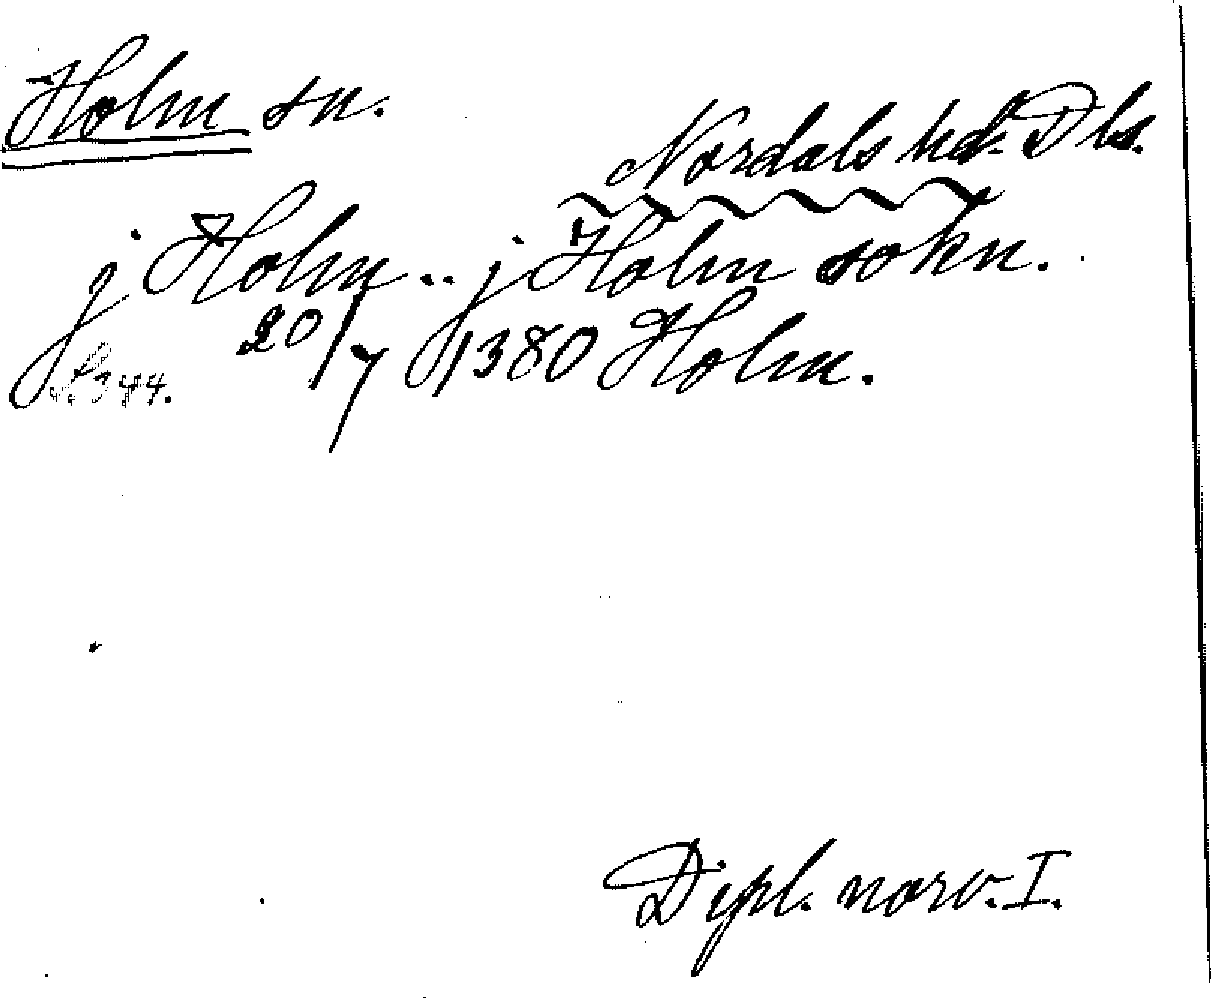 Holm sn.
Nordals hd. Dls.
j Holm .. j Holm sokn.
20/7 1380 Holm.
S. 344.
Dipl. norv. I.